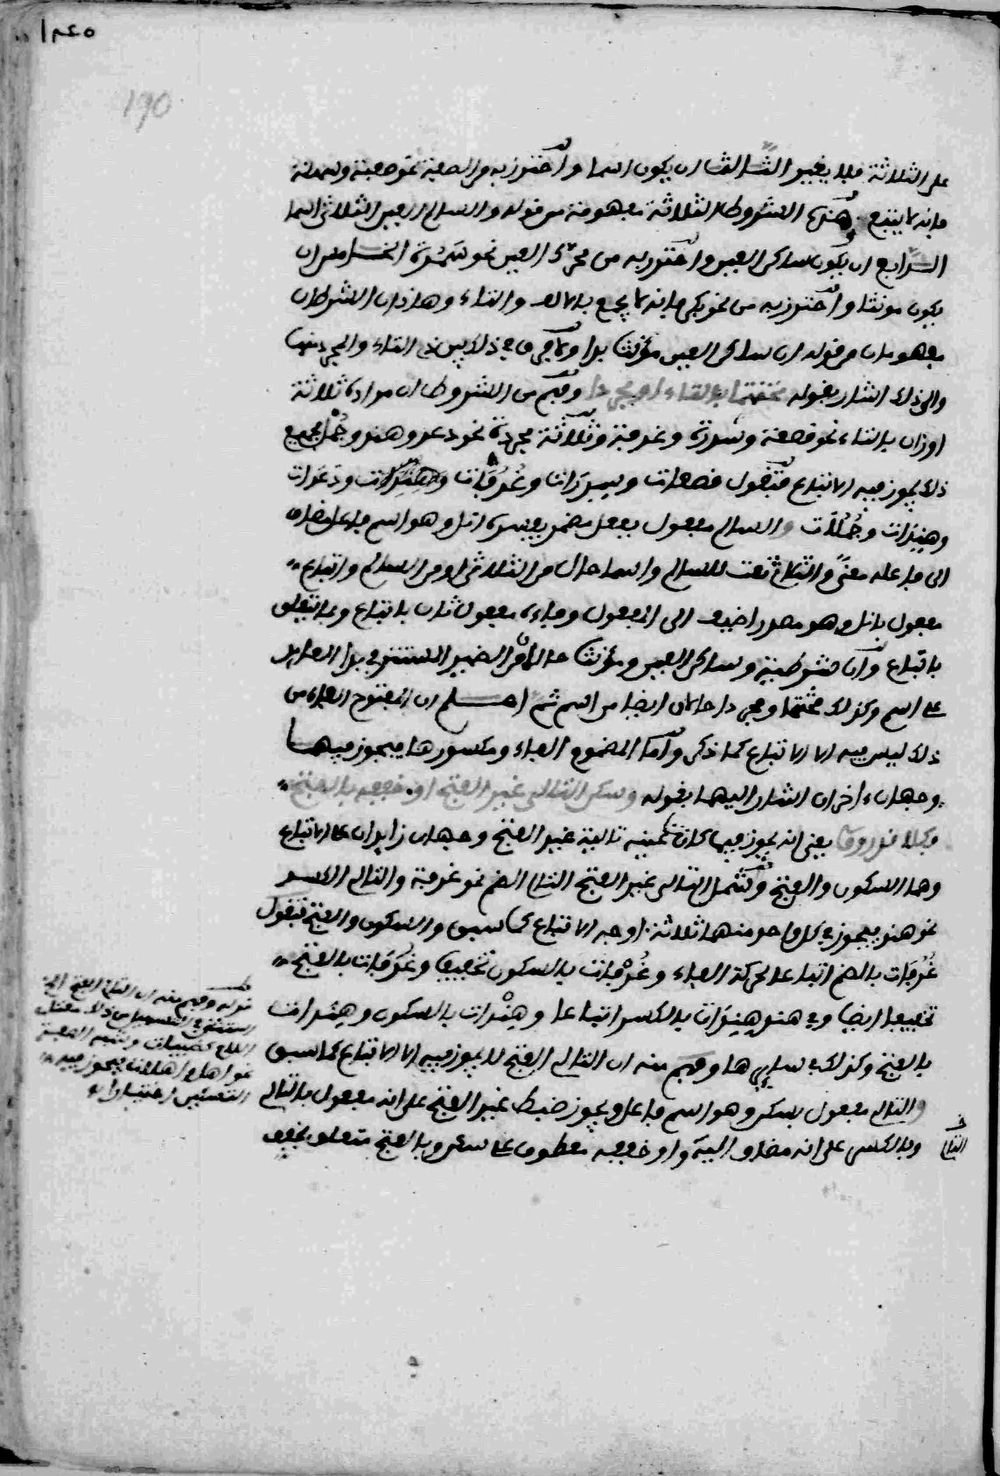 ١٣٤٥
190
على الثلاثة فلا يغير الثالث ان يكون اسما واحترز به من الصفة نحو صعبة وسهلة
فانه لا يتبع وهذه الشروط الثلاثة مفهومة من قوله والسالم العين الثلاثي اسما
الرابع ان يكون ساكن العين واحترز به من محرك العين نحو سمرة الخامس ان
يكون مؤنثا واحترز به من نحو بكر فانه لا يجمع بالالف والتاء وهاذان الشرطان
مفهومان من قوله ان ساكن العين مؤنثا بدا ولا فرق في ذلك بين ذي التاء والمجرد منها
والى ذلك اشار بقوله مختتما بالتاء او مجردا وفهم من الشروط ان مراده ثلاثة
اوزان بالتاء نحو قصعة وسدرة وغرفة وثلاثة مجردة نحو دعد وهند وجمل فجميع
ذلك يجوز فيه الاتباع فتقول قصعات وسدرات وغرفات ودعدات
وهندات وجملات والسالم مفعول بفعل مضمر يفسره انل وهو اسم فاعل مضاف
الى فاعله معنى والثلاثي نعت للسالم واسما حال من الثلاثي او من السالم واتباع
مفعول بانل وهو مصدر اضيف الى المفعول وفاءه مفعول ثان باتباع وبما متعلق
باتباع وان شرطية وساكن العين ومؤنثا حالان من الضمير المستتر في بدا العائد
على اسم وكذلك مختتما ومجردا حالان ايضا من اسم ثم اعلم ان المفتوح الفاء من
ذلك ليس فيه الا الاتباع كما ذكر واما المضموم الفاء ومكسورها فيجوز فيهما
وجهان اخران اشار اليهما بقوله وسكن التالي غير الفتح او خففه بالفتح
فكلا قد رووا يعني انه يجوز فيما كانت عينه تالية غير الفتح وجهان زايدان على الاتباع
وهما السكون والفتح وشمل التالي غير الفتح التالي الضم نحو غرفة والتالي الكسر
نحو هند فيجوز في كل واحد منهما ثلاثة اوجه الاتباع كما سبق والسكون والفتح فتقول
غرفات بالضم اتباعا لحركة الفاء وغرفات بالسكون تخفيفا وغرفات بالفتح
تخفيفا ايضا وفي هند هندات بالكسر اتباعا وهندات بالسكون وهندات
بالفتح وكذلك سايرها وفهم منه ان التالي الفتح لا يجوز فيه الا الاتباع كما سبق
والتالي مفعول بسكن وهو اسم فاعل ويجوز ضبط غير بالفتح على انه مفعول بالتالي
وبالكسر على انه مضاف اليه واو خففه معطوف على سكن وبالفتح متعلق بخفف
قوله وفهم منه ان التالي الفتح الخ
استثنى في التسهيل من ذلك معتل
اللام كظبيات وشبه الصفة
نحو اهل واهلات فيجوز فيه
التسكين اختيارا